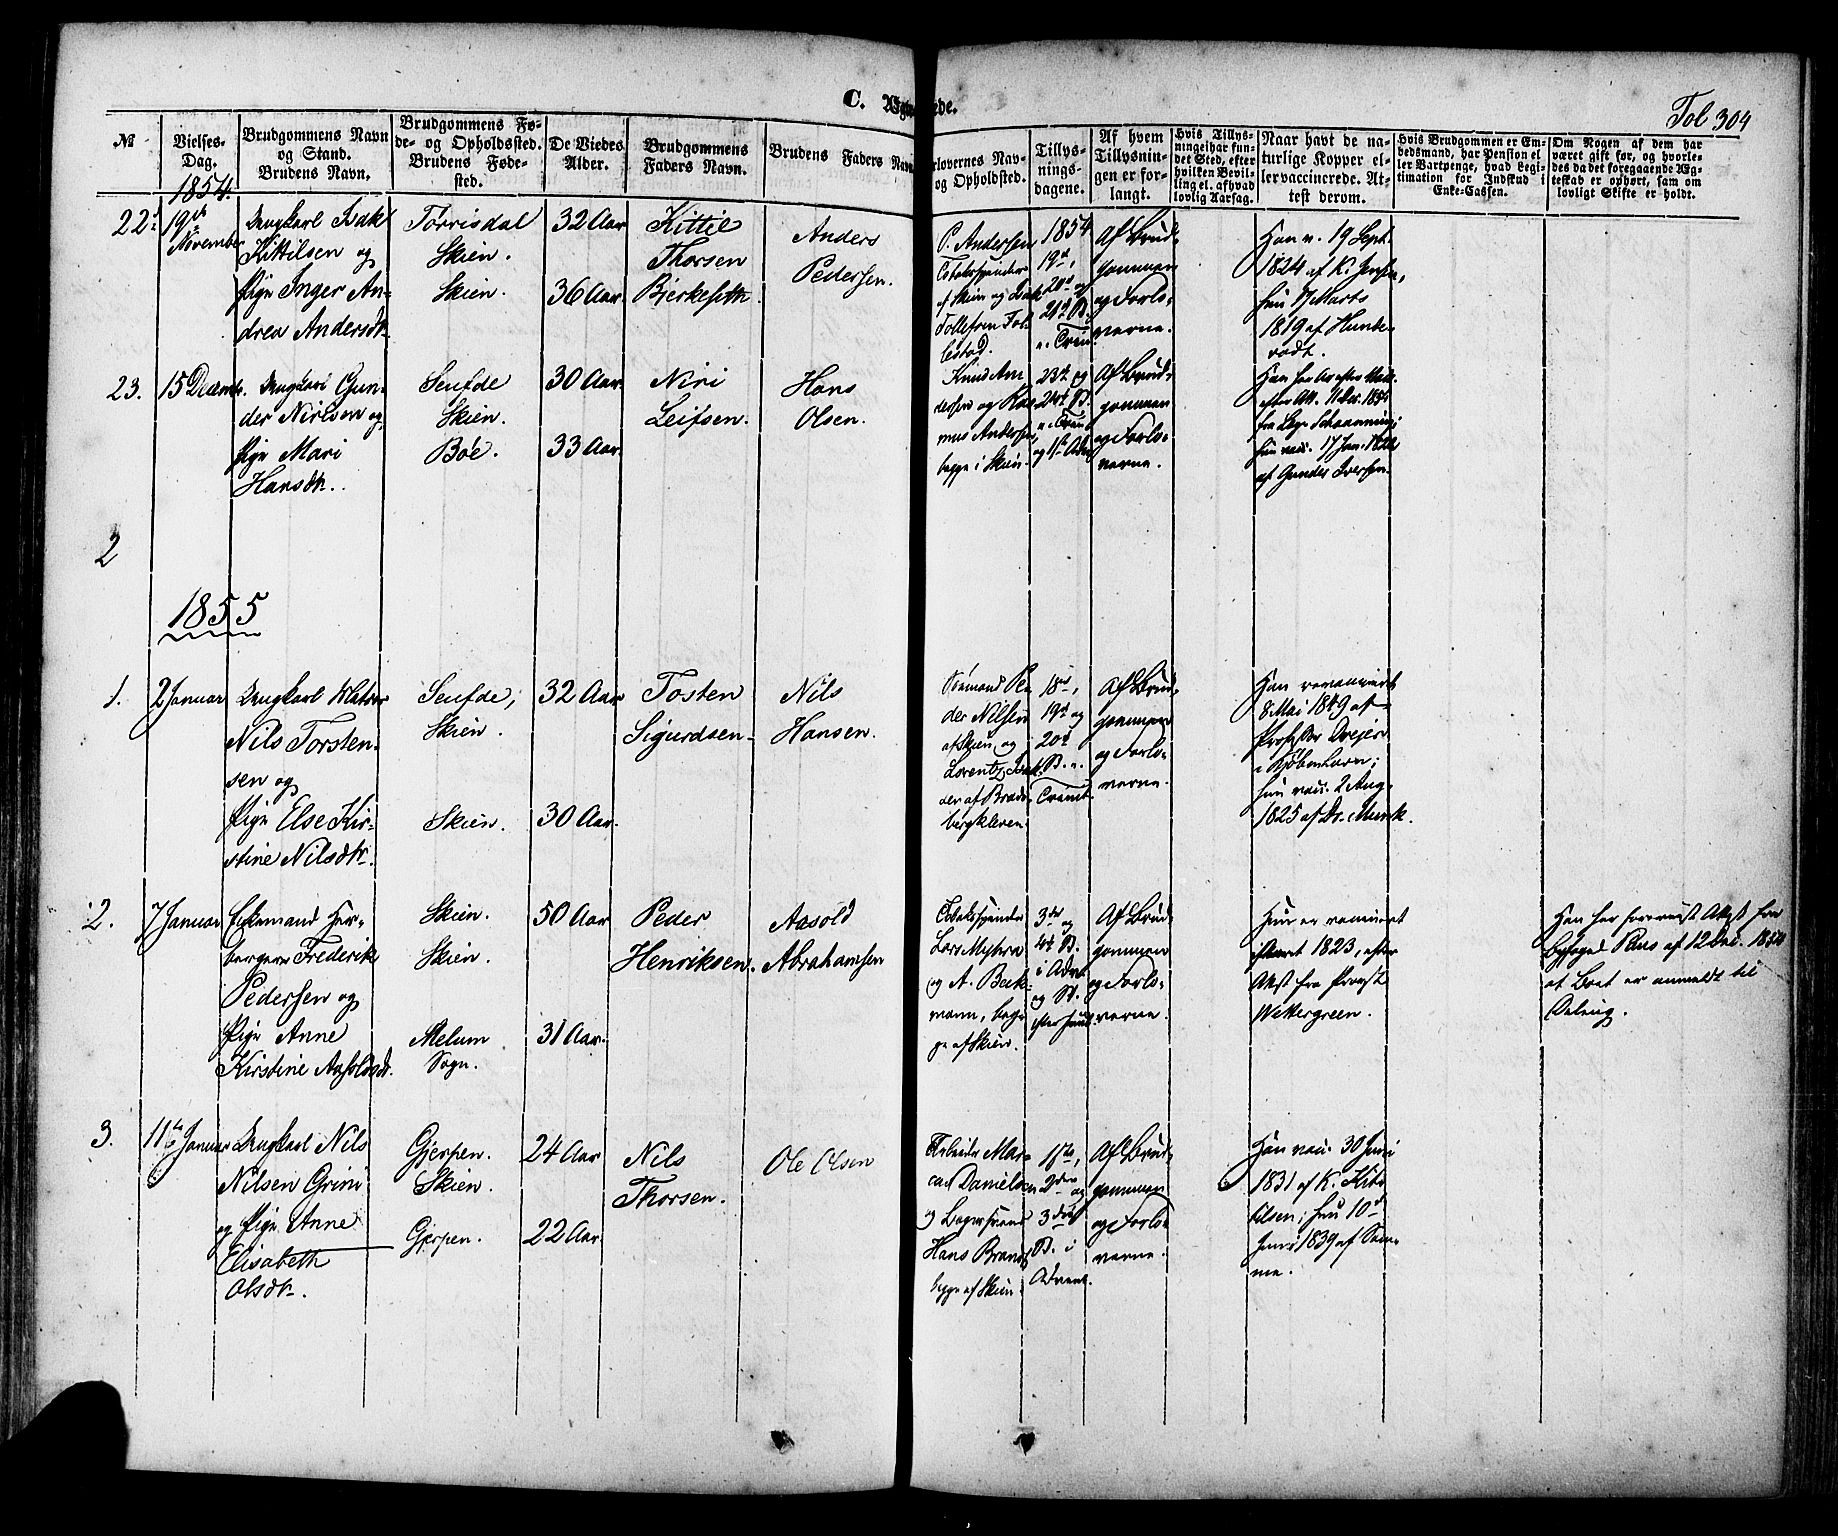 C. Ægteviede.
Fol 304
No
Vielses-
Dag.
1854.
Brudgommens Navn
og Stand.
Brudens Navn.
Brudgommens Fø-
de- og Opholdssted.
Brudens Føde-
sted.
De Viedes
Alder.
Brudgommens
Faders Navn.
Brudens Faders Navn
orlovernes Nav-
og Opholdsted.
Tillys-
nings-
dagene.
Af hvem
Tillysnin-
gen er for-
langt.
Hvis Tillys-
ningei har fun-
det Sted, efter
hvilken Bevil-
ling el. af hvad
lovlig Aarsag.
Naar havt de na-
turlige Kopper el-
ler vaccinerede. At-
test derom.
Hvis Brudgommen er Em-
bedsmand, har Pension el
ler Vartpenge, hvad Legi-
timation for Indskud i
Enke-Cassen.
Om Nogen af dem har
været gift før, og hvorle-
des da det foregaaende Æg-
teskab er ophørt, sam om
lovligt Skifte er holdt.
22.
19de
November
Ungkarl Isak
Kittilsen og
Pige Inger An-
drea Andersdtr
Torrisdal
Skien.
Skien.
32 Aar
36 Aar
Kittil
Thorsen
Bjerkeseth.
Anders
Pedersen.
P. Andersen
af Skien og Isak
Tollefsen Fol-
lestad.
1854
19de,
20de og
21de S.
e. Trin.
Af Brud-
gommen
og Forlo-
verne.
Han v. 19 Sept.
1824 af K. Jensen,
hun 17 Marts
1819 af Hunde-
rødt.
23.
15 Decemb.
Ungkarl Gun-
der Nirisen og
Pige Mari
Hansdtr.
Seufde
Skien.
Böe.
30 Aar
33 Aar
Niri
Leifsen.
Hans
Olsen.
Knud An-
dersen og Ras-
mus Andersen,
begge i Skien.
23de og
24de S.
e. Trin.
og 1ste Adv.
Af Brud-
gommen
og Forlo-
verne.
efter Att. 11 Dec. 1854
hun vac. 17 Jan. 1822
af Gunder Iversen.
2
1855
1.
2 Januar
Ungkarl Matros
Nils Torsten-
sen og
Pige Else Kir-
stine Nilsdtr.
Seufde;
Skien.
Skien.
32 Aar
30 Aar.
Tosten
Sigurdsen.
Nils
Hansen.
Sömand Pe-
der Nilsen
af Skien og
Lorentz Isak-
sen af Brats-
bergkleven.
18de,
19de og
20de
S. e.
Trinit.
Af Brud-
gommen
og Forlo-
verne.
Han revaccineret
8 Mai 1849 af
Professor Drejer
i Kjöbenhavn;
hun vac. 2 Aug.
1825 af Dr. Munk.
2.
7 Januar
Enkemand Her-
bergerer Frederik
Pedersen og
Pige Anne
Kirstine Aasoldsdtr.
Skien.
Skien.
Melum
Sogn.
50 Aar
31 Aar.
Peder
Henriksen.
Aasold
Abrahamsen
Lars Mythra
og A. Beck-
mann, beg-
ge af Skien.
3die og
4de S.
i Advt.
og S.
Af Brud-
gommen
og Forlo-
verne.
Hun er vaccineret
Aaret 1823, efter
Attest fra Provst
Wettergreen.
Han har forevist Attest fra
Byfoged Paus af 12 Dec. 1854
at Boet er anmeldt til
Deling.
3.
11te Januar
Ungkarl Nils
Nilsen Grini
og Pige Anne
Elisabeth
Olsdtr.
Gjerpen.
Skien.
Gjerpen.
24 Aar
22 Aar.
Nils
Thorsen.
Ole Olsen
Arbeider Mar-
cus Danielsen
og Bagersvend
Hans Brandt
begge af Skien.
1ste,
2den og
3die
S. i
Advent.
Af Brud-
gommen
og Forlo-
verne.
Han vac. 30 Juni
1831 af K. Kit-
tilsen; hun 10de
Juni 1839 af Sam-
me.